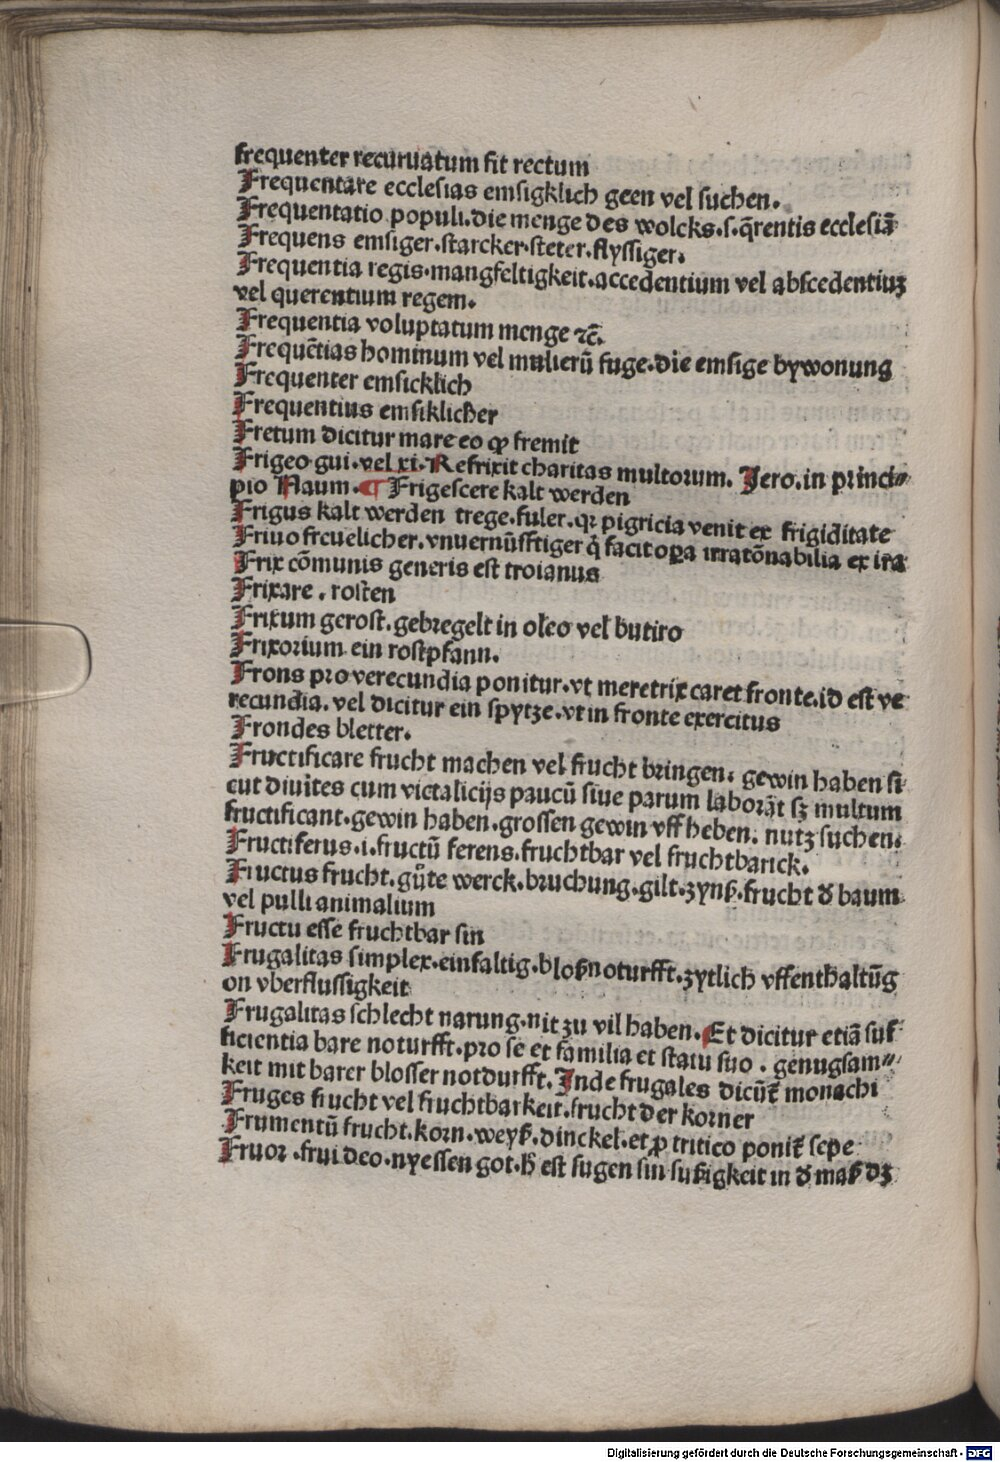 frequenter recuruatum fit rectum
Frequentare ecclesias emsigklich geen vel suchen.
Frequentatio populi.die menge des wolcks.s.q̄rentis ecclesiā
Frequens emsiger.starcker.steter.flyssiger.
Frequentia regis.mangfeltigkeit.accedentium vel abscedentiuꝫ
vel querentium regem.
Frequentia voluptatum menge ⁊c̄.
Frequētias hominum vel mulierū fuge.die emsige bywonung
Frequenter emsicklich
Frequentius emsiklicher
Fretum dicitur mare eo ꝙ fremit
Frigeo gui.vel xi.Refrixit charitas multorum. Jero.in princi⸗
pio Naum.¶ Frigescere kalt werden
Frigus kalt werden trege.fuler.qꝛ pigricia venit ex frigiditate
Friuo freuelicher.vnuernūfftiger q̇ facit oꝑa irratōnabilia ex ira
Frix cōmunis generis est troianus
Frixare . rosten
Frixum gerost.gebregelt in oleo vel butiro
Frixorium ein rostpfann.
Frons pro verecundia ponitur.vt meretrix caret fronte.id est ve
recundia.vel dicitur ein spytze.vt in fronte exercitus
Frondes bletter.
Fructificare frucht machen vel frucht bringen. gewin haben si
cut diuites cum victalicijs paucū siue parum laborāt sꝫ multum
fructificant.gewin haben.grossen gewin vff heben. nutz suchen.
Fructiferus.i.fructū ferens.fruchtbar vel fruchtbarick.
Fructus frucht.gūte werck.bruchung.gilt.zynß.frucht ď baum
vel pulli animalium
Fructu esse fruchtbar sin
Frugalitas simplex.einfaltig.bloß noturfft.zytlich vffenthaltūg
on vberflussigkeit
Frugalitas schlecht narung.nit zu vil haben.Et dicitur etiā suf
ficientia bare noturfft.pro se et familia et statu suo . genugsam⸗
keit mit barer blosser notdurfft.Inde frugales dicūt̄ monachi
Fruges frucht vel fruchtbarkeit.frucht der korner
Frumentū frucht.korn.weyß.dinckel.et ꝓ tritico ponit̄ sepe
Fruor .frui deo.nyessen got.ħ est sugen sin sußigkeit in ď maß dꝫ
Digitalisierung gefördert durch die Deutsche Forschungsgemeinschaft - DFG